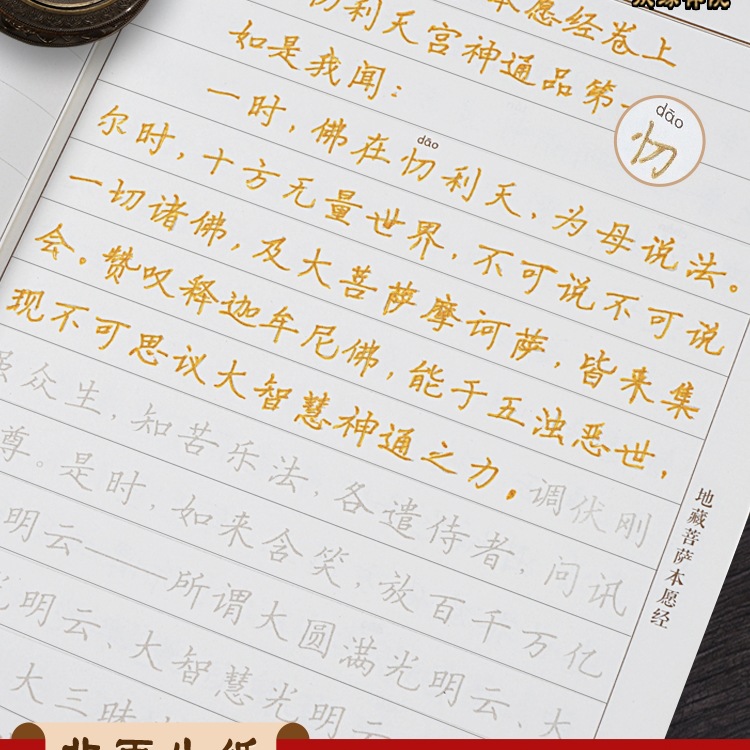 本愿经卷上
忉利天宫神通品第一
如是我闻：
一时，佛在忉利天，为母说法。
dāo
dāo
忉
尔时，十方无量世界，不可说不可说
一切诸佛，及大菩萨摩诃萨，皆来集
会。赞叹释迦牟尼佛，能于五浊恶世，
现不可思议大智慧神通之力。调伏刚
强众生，知苦乐法，各遣侍者，问讯
尊。是时，如来含笑，放百千万亿
明云——所谓大圆满光明云、大
光明云、大智慧光明云、大
大三昧
地藏菩萨本愿经